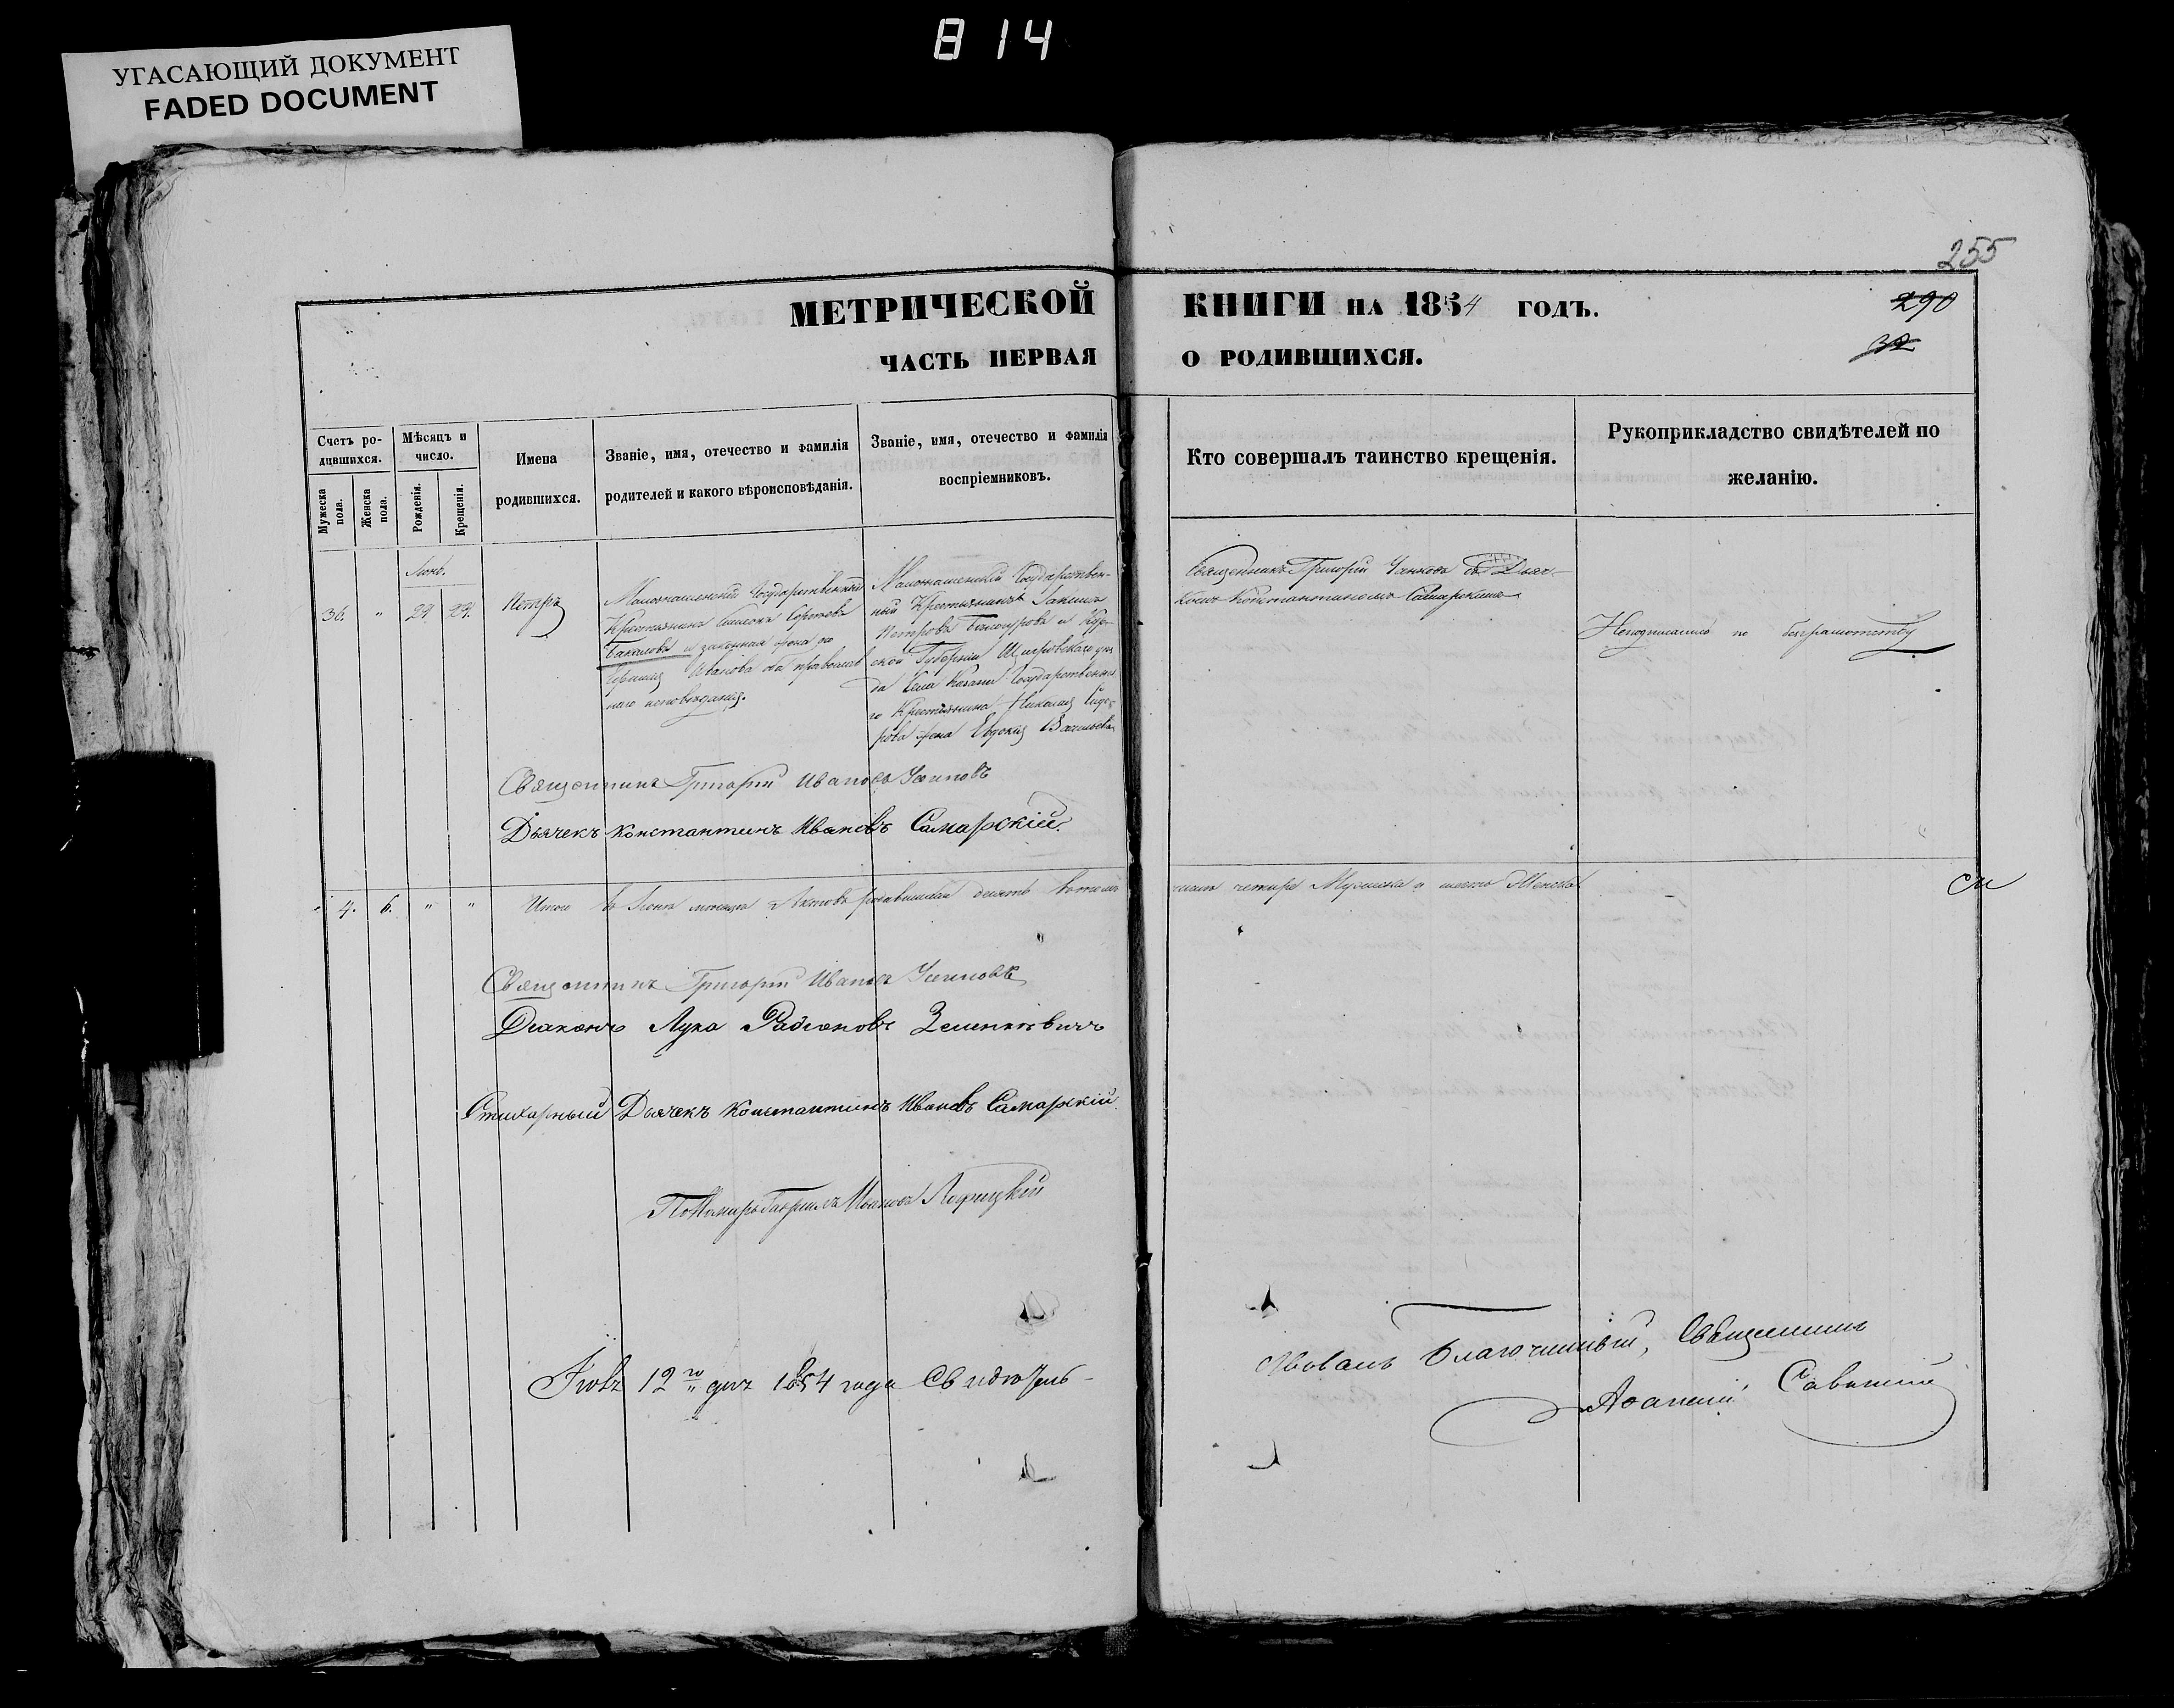 814
УГАСАЮЩИЙ ДОКУМЕНТ
FADED DOCUMENT
255
МЕТРИЧЕСКОЙ КНИГИ НА 1854 ГОДЪ.
290
32
ЧАСТЬ ПЕРВАЯ О РОДИВШИХСЯ.
Счетъ ро-
дившихся.
Мужеска пола.
Женска пола.
Мѣсяцъ и
число.
Рожденія.
Крещенія.
Имена
родившихся.
Званіе, имя, отечество и фамилія
родителей и какого вѣроисповѣданія.
Званіе, имя, отечество и фамилія
воспріемниковъ.
Кто совершалъ таинство крещенія.
Рукоприкладство свидѣтелей по
желанію.
Іюнь.
36. " 29. 29. Петръ
Государственный
Крестьянинъ Симеонъ Сергѣевъ
Бакаловъ и законная жена его
Иванова оба православ
наго исповѣданія.
Государствен-
ный Крестьянинъ
Петровъ и Кур-
ской Губерніи Щигровскаго уѣз
да Села Государственна
го Крестьянина Николая Сидо-
рова жена Евдокія Васильева
Священникъ Григорій съ Дьяч-
комъ Константиномъ Самарскимъ
Неподписались по безграмотству
Священникъ Григорій Ивановъ
Дьячекъ Константинъ Ивановъ Самарскій.
4. 6. " " Итого въ Іюнѣ мѣсяцѣ Актовъ родившихся десять въ томъ числѣ четыре Мужеска и шесть Женска
Священникъ Григорій Ивановъ
Діаконъ Лука Радіоновъ
Стихарный Дьячекъ Константинъ Ивановъ Самарскій.
Пономарь Гавріилъ Ивановъ
Іюля 12го дня 1854 года Свидѣтель-
ствовалъ Благочинный, Священникъ